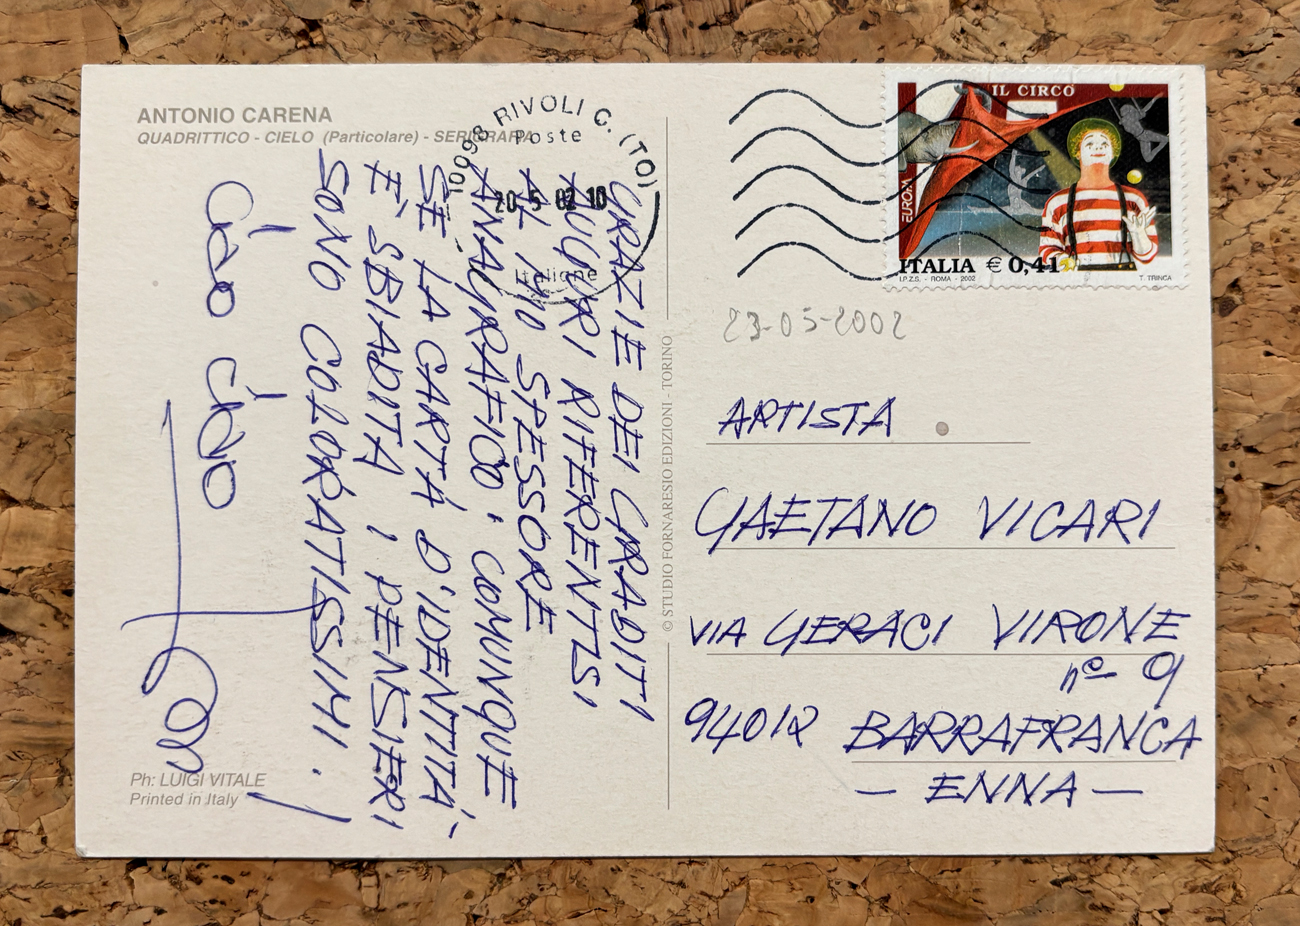 ANTONIO CARENA
QUADRITTICO - CIELO (Particolare) - SERIGRAFIA
10098 RIVOLI C. (TO)
Poste
20 5 02 10
Italiane
IL CIRCO
EUROPA
ITALIA € 0,41
I.P.Z.S. - ROMA - 2002
T. TRINCA
23-05-2002
GRAZIE DEI GRADITI
AUGURI RIFERENTISI
AL MIO SPESSORE
ANAGRAFICO, COMUNQUE
SE LA CARTA D'IDENTITA'
E' SBIADITA I PENSIERI
SONO COLORATISSIMI.
CIAO CIAO
© STUDIO FORNARESIO EDIZIONI - TORINO
ARTISTA
GAETANO VICARI
VIA GERACI VIRONE
n° 9
94012 BARRAFRANCA
— ENNA —
Ph: LUIGI VITALE
Printed in Italy